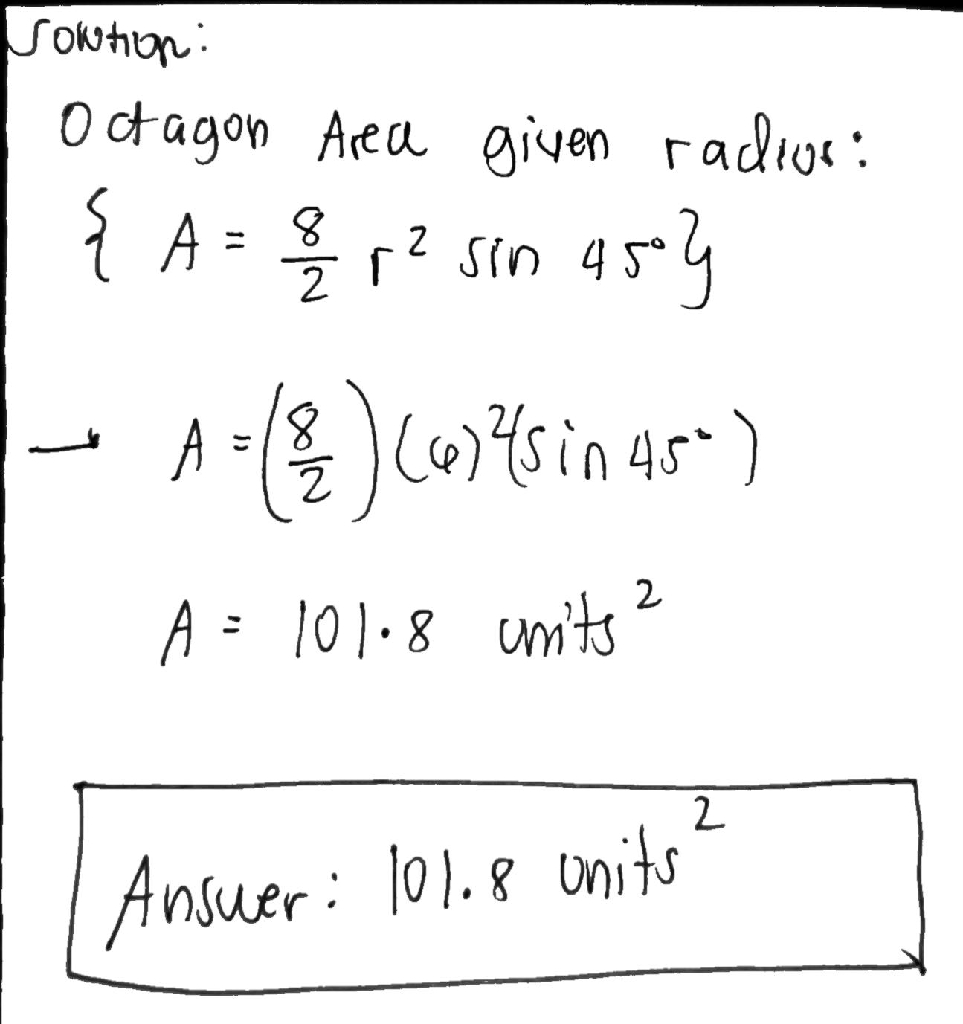 Solution:
Octagon Area given radius:
{ A = 8/2 r² sin 45° }
→ A = (8/2) (6)² (sin 45°)
A = 101.8 units²
Answer: 101.8 units²